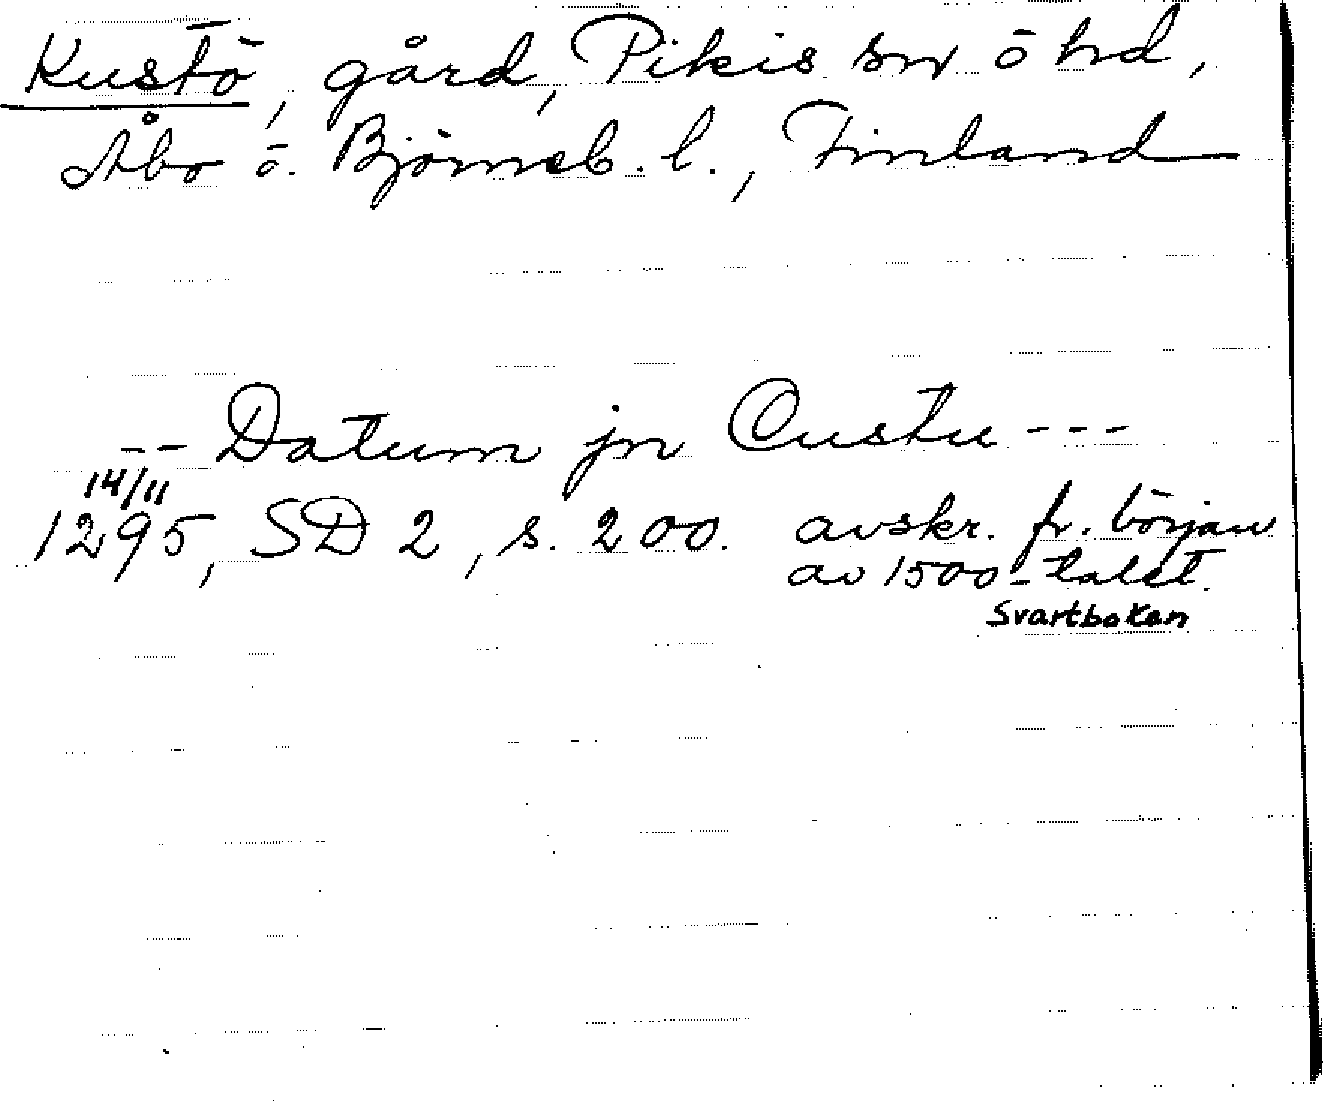 Kustö, gård, Pikis sn ö hd,
Åbo ö. Björneb. l., Finland
-- Datum jn Custu ---
14/11
1295, SD 2, s. 200. avskr. fr. början
av 1500-talet.
Svartboken